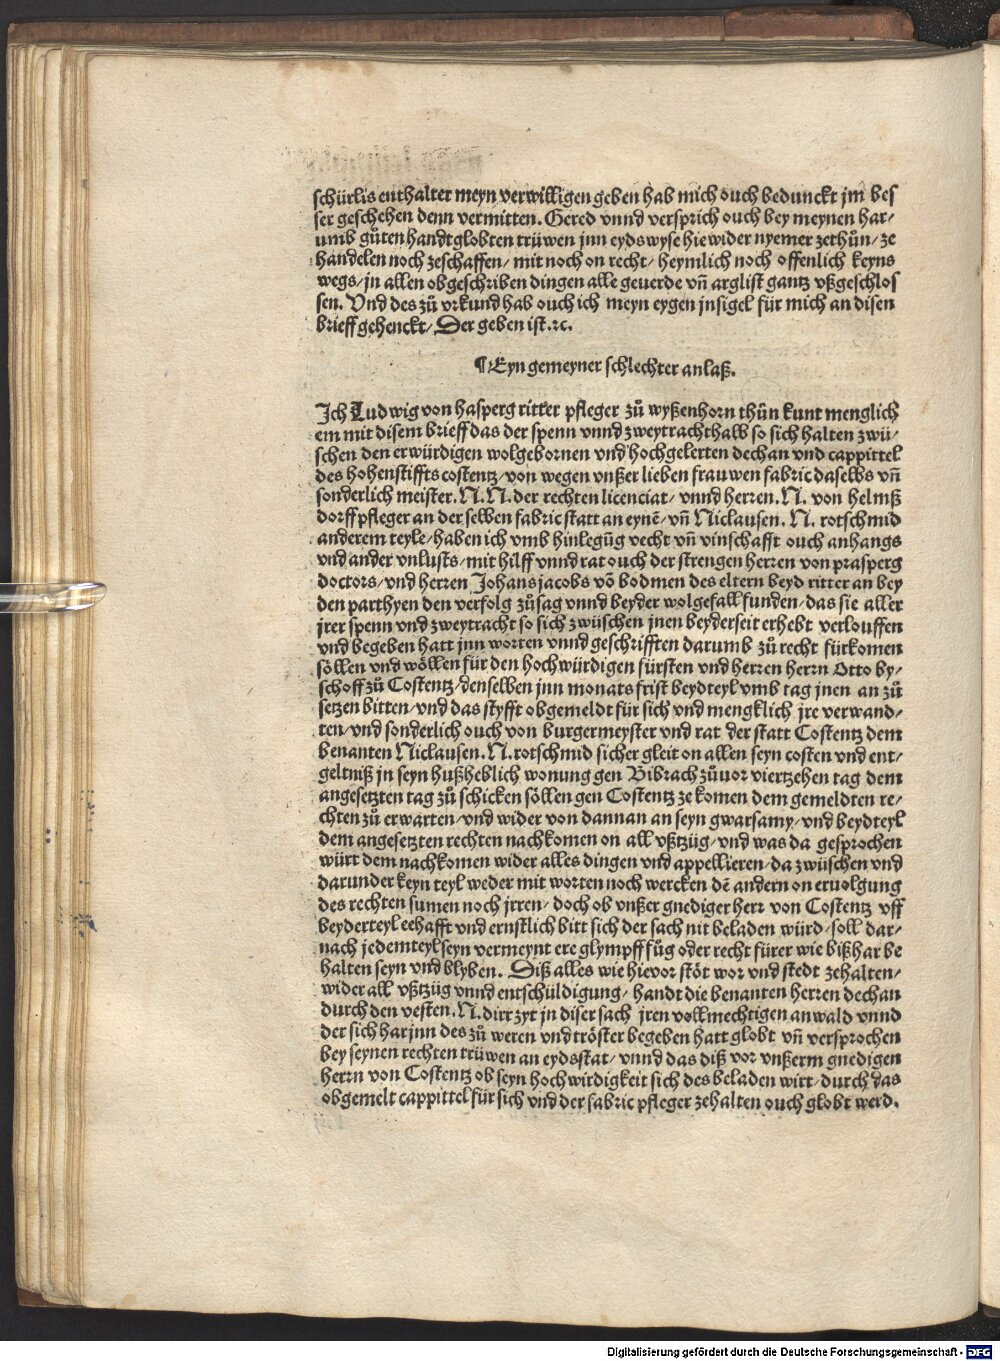 schürlis enthalter meyn verwilligen geben hab mich ouch bedunckt jm bes
ser geschehen denn vermitten. Gered vnnd versprich ouch bey meynen har⸗
umb gůten handtglobten trüwen jnn eydswyse hiewider nyemer zethůn/ ze
handelen noch zeschaffen/ mit noch on recht/ heymlich noch offenlich keyns
wegs/ jn allen obgeschriben dingen alle geuerde vn̄ arglist gantz vßgeschlos
sen. Vnd des zů vrkund hab ouch ich meyn eygen jnsigel für mich an disen
brieff gehenckt/ Der geben ist.⁊c.
¶ Eyn gemeyner schlechter anlaß.
Ich Ludwig von hasperg ritter pfleger zů wyßenhorn thůn kunt menglich
em mit disem brieff das der spenn vnnd zweytrachthalb so sich halten zwü⸗
schen den erwürdigen wolgebornen vnd hochgelerten dechan vnd cappittel
des hohenstiffts costentz/ von wegen vnßer lieben frauwen fabric daselbs vn̄
sonderlich meister. N. N. der rechten licenciat/ vnnd herren. N. von helmß
dorff pfleger an der selben fabric statt an eynē/ vn̄ Niclausen. N. rotschmid
anderem teyle/ haben ich vmb hinlegūg vecht vn̄ vinschafft ouch anhangs
vnd ander vnlusts/ mit hilff vnnd rat ouch der strengen herren von prasperg
doctors/ vnd herren Johans jacobs vō bodmen des eltern beyd ritter an bey
den parthyen den verfolg zůsag vnnd beyder wolgefall funden/ das sie aller
jrer spenn vnd zweytracht so sich zwüschen jnen beyderseit erhebt verlouffen
vnd begeben hatt jnn worten vnnd geschrifften darumb zů recht fürkomen
söllen vnd wöllen für den hochwürdigen fürsten vnd herren herrn Otto by⸗
schoff zů Costentz/ denselben jnn monats frist beydteyl vmb tag jnen an zů
setzen bitten/ vnd das styfft obgemeldt für sich vnd mengklich jre verwand⸗
ten/ vnd sonderlich ouch von burgermeyster vnd rat der statt Costentz dem
benanten Niclausen. N. rotschmid sicher gleit on allen seyn costen vnd ent⸗
geltniß jn seyn hußheblich wonung gen Bibrach zůuor viertzehen tag dem
angesetzten tag zů schicken söllen gen Costentz ze komen dem gemeldten re⸗
chten zů erwarten/ vnd wider von dannan an seyn gwarsamy/ vnd beydteyl
dem angesetzten rechten nachkomen on all vßtzüg/ vnd was da gesprochen
würt dem nachkomen wider alles dingen vnd appellieren/ da zwüschen vnd
darunder keyn teyl weder mit worten noch wercken dē andern on eruolgung
des rechten sumen noch jrren/ doch ob vnßer gnediger herr von Costentz vff
beyderteyl eehafft vnd ernstlich bitt sich der sach nit beladen würd/ soll dar⸗
nach jedemteyl seyn vermeynt ere glympff füg oder recht fürer wie bißhar be
halten seyn vnd blyben. Diß alles wie hieuor stöt wor vnd stedt zehalten/
wider all vßtzüg vnnd entschüldigung/ handt die benanten herren dechan
durch den vesten. N. dirr zyt jn diser sach jren vollmechtigen anwald vnnd
der sich har jnn des zů weren vnd tröster begeben hatt globt vn̄ versprochen
bey seynen rechten trüwen an eydsstat/ vnnd das diß vor vnßerm gnedigen
herrn von Costentz ob seyn hochwirdigkeit sich des beladen wirt/ durch das
obgemelt cappittel für sich vnd der fabric pfleger zehalten ouch globt werd.
Digitalisierung gefördert durch die Deutsche Forschungsgemeinschaft - DFG